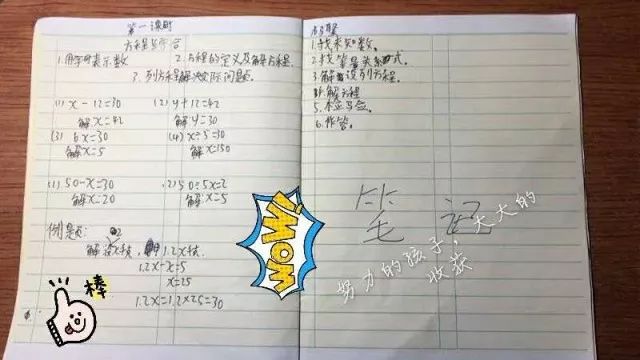 第一课时
方程与方合
1.用字母表示数 2.方程的定义及解方程.
3.列方程解决实际问题.
(1) x-12=30 (2) y+12=42
解 x=42 解 y=30
(3) 6x=30 (4) x÷5=30
解 x=5 解 x=150
(1) 50-x=30 (2) 50÷5x=2
解 x=20 解 x=5
例题:
解 设x技, 1.2x技.
1.2x-x=5
x=25
1.2x=1.2×25=30
棒
WOW!
1.找未知数.
2.找等量关系式.
3.解设列方程.
4.解方程
5.检验.
6.作答.
笔记
努力的孩子,大大的
收获